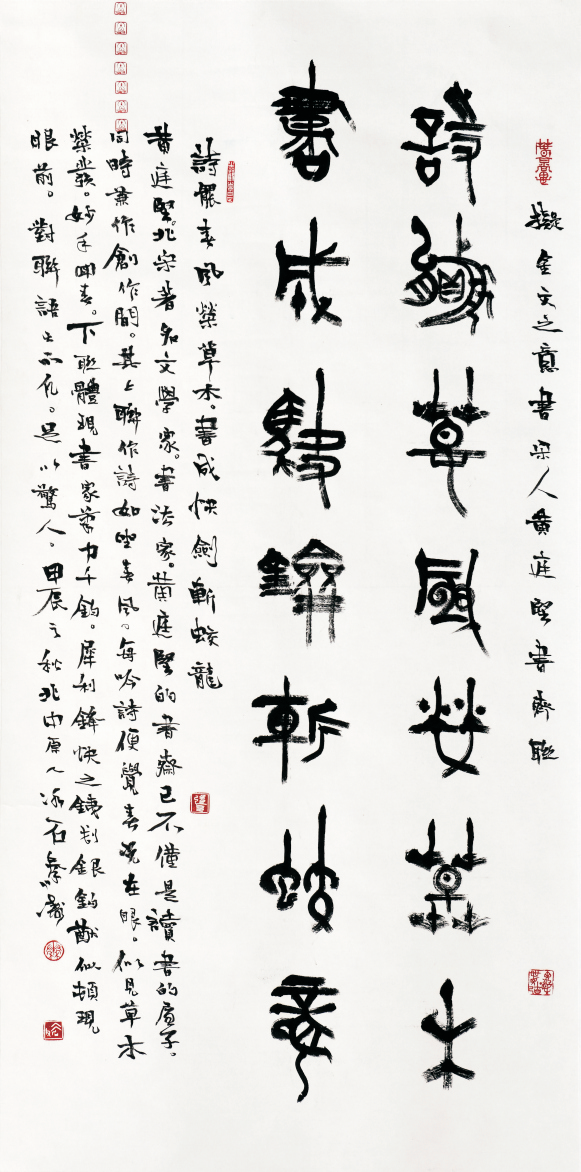 擬金文之意書宋人黃庭堅書齋聯
詩罷春風榮草木
書成快劍斬蛟龍
詩罷春風榮草木。書成快劍斬蛟龍
黃庭堅。北宋著名文學家。書法家。黃庭堅的書齋已不僅是讀書的屋子。
同時兼作創作間。其上聯作詩如坐春風。每吟詩便覺春光在眼。似見草木
榮發。妙手回春。下聯體現書家筆力千鈞。犀利鋒快之鐵划銀鈎猷似頓現
眼前。對聯語出不凡。足以驚人。甲辰之秋北中原人冰石